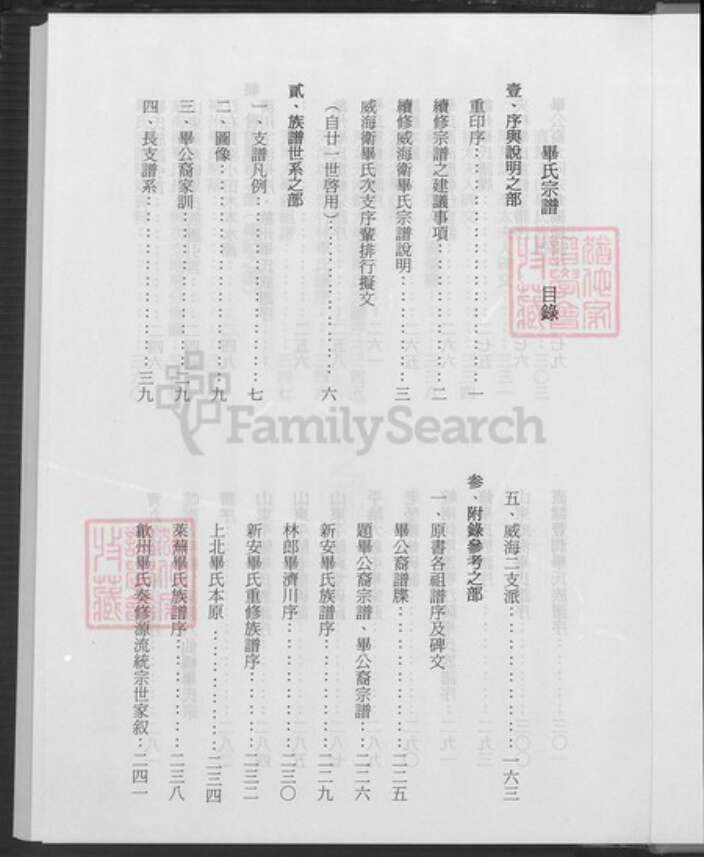 畢氏宗譜 目錄
壹、序與說明之部
重印序：：：：：：：：：：：：一
續修宗譜之建議事項：：：：：：：：二
續修威海衛畢氏宗譜說明：：：：：：三
威海衛畢氏次支序輩排行擬文
（自廿一世啓用）：：：：：：：：：六
貳、族譜世系之部
一、支譜凡例：：：：：：：：：：七
二、圖像：：：：：：：：：：：九
三、畢公裔家訓：：：：：：：：二九
四、長支譜系：：：：：：：：：三九
五、威海二支派：：：：：：：：一六三
參、附錄參考之部
一、原書各祖譜序及碑文
畢公裔譜牒：：：：：：：：二二五
題畢公裔宗譜、畢公裔宗譜：：二二六
新安畢氏族譜序：：：：：：二二九
林郎畢濟川序：：：：：：：二三〇
新安畢氏重修族譜序：：：：二三二
上北畢氏本原：：：：：：：二三四
萊蕪畢氏族譜序：：：：：：二三八
歙州畢氏奏修源流統宗世家叙：二四一
FamilySearch